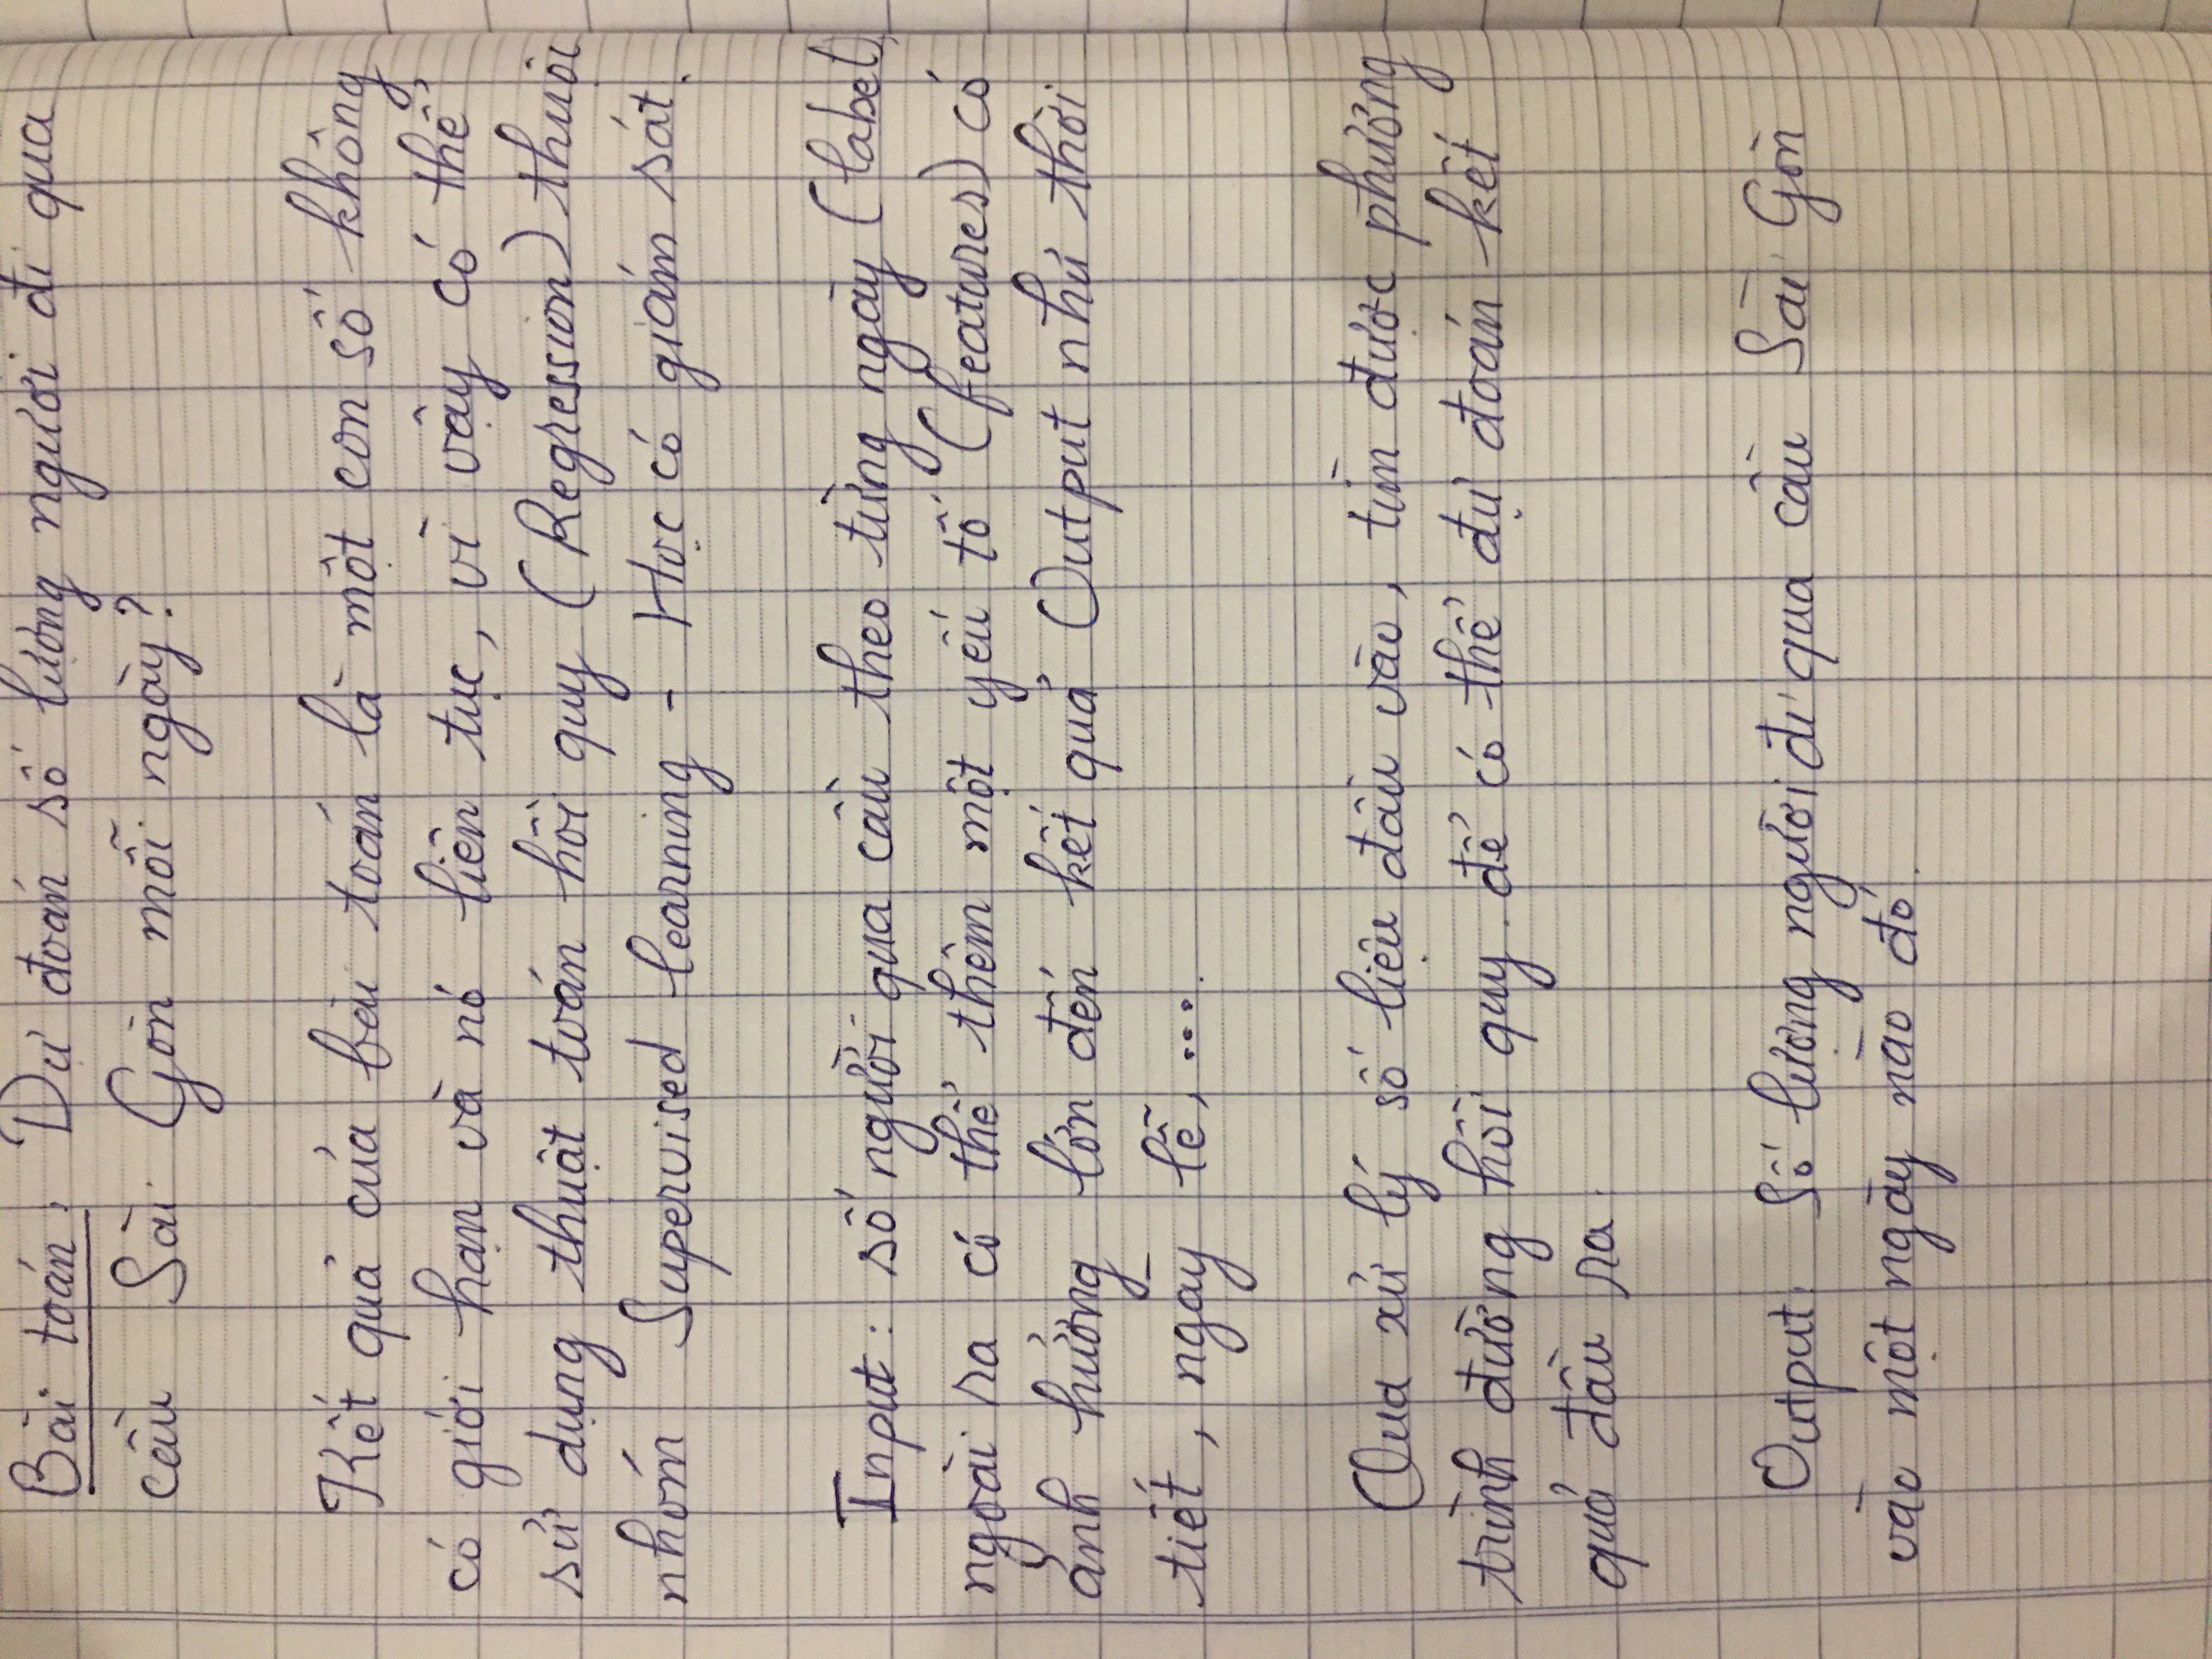 Bài toán: Dự đoán số lượng người đi qua
cầu Sài Gòn mỗi ngày?
Kết quả của bài toán là một con số không
có giới hạn và nó liên tục, vì vậy có thể
sử dụng thuật toán hồi quy (Regression) thuộc
nhóm Supervised learning - Học có giám sát.
Input: số người qua cầu theo từng ngày (label),
ngoài ra có thể thêm một yếu tố (features) có
ảnh hưởng lớn đến kết quả Output như thời
tiết, ngày lễ, ....
Qua xử lý số liệu đầu vào, tìm được phương
trình đường hồi quy để có thể dự đoán kết
quả đầu ra.
Output: Số lượng người đi qua cầu Sài Gòn
vào một ngày nào đó.